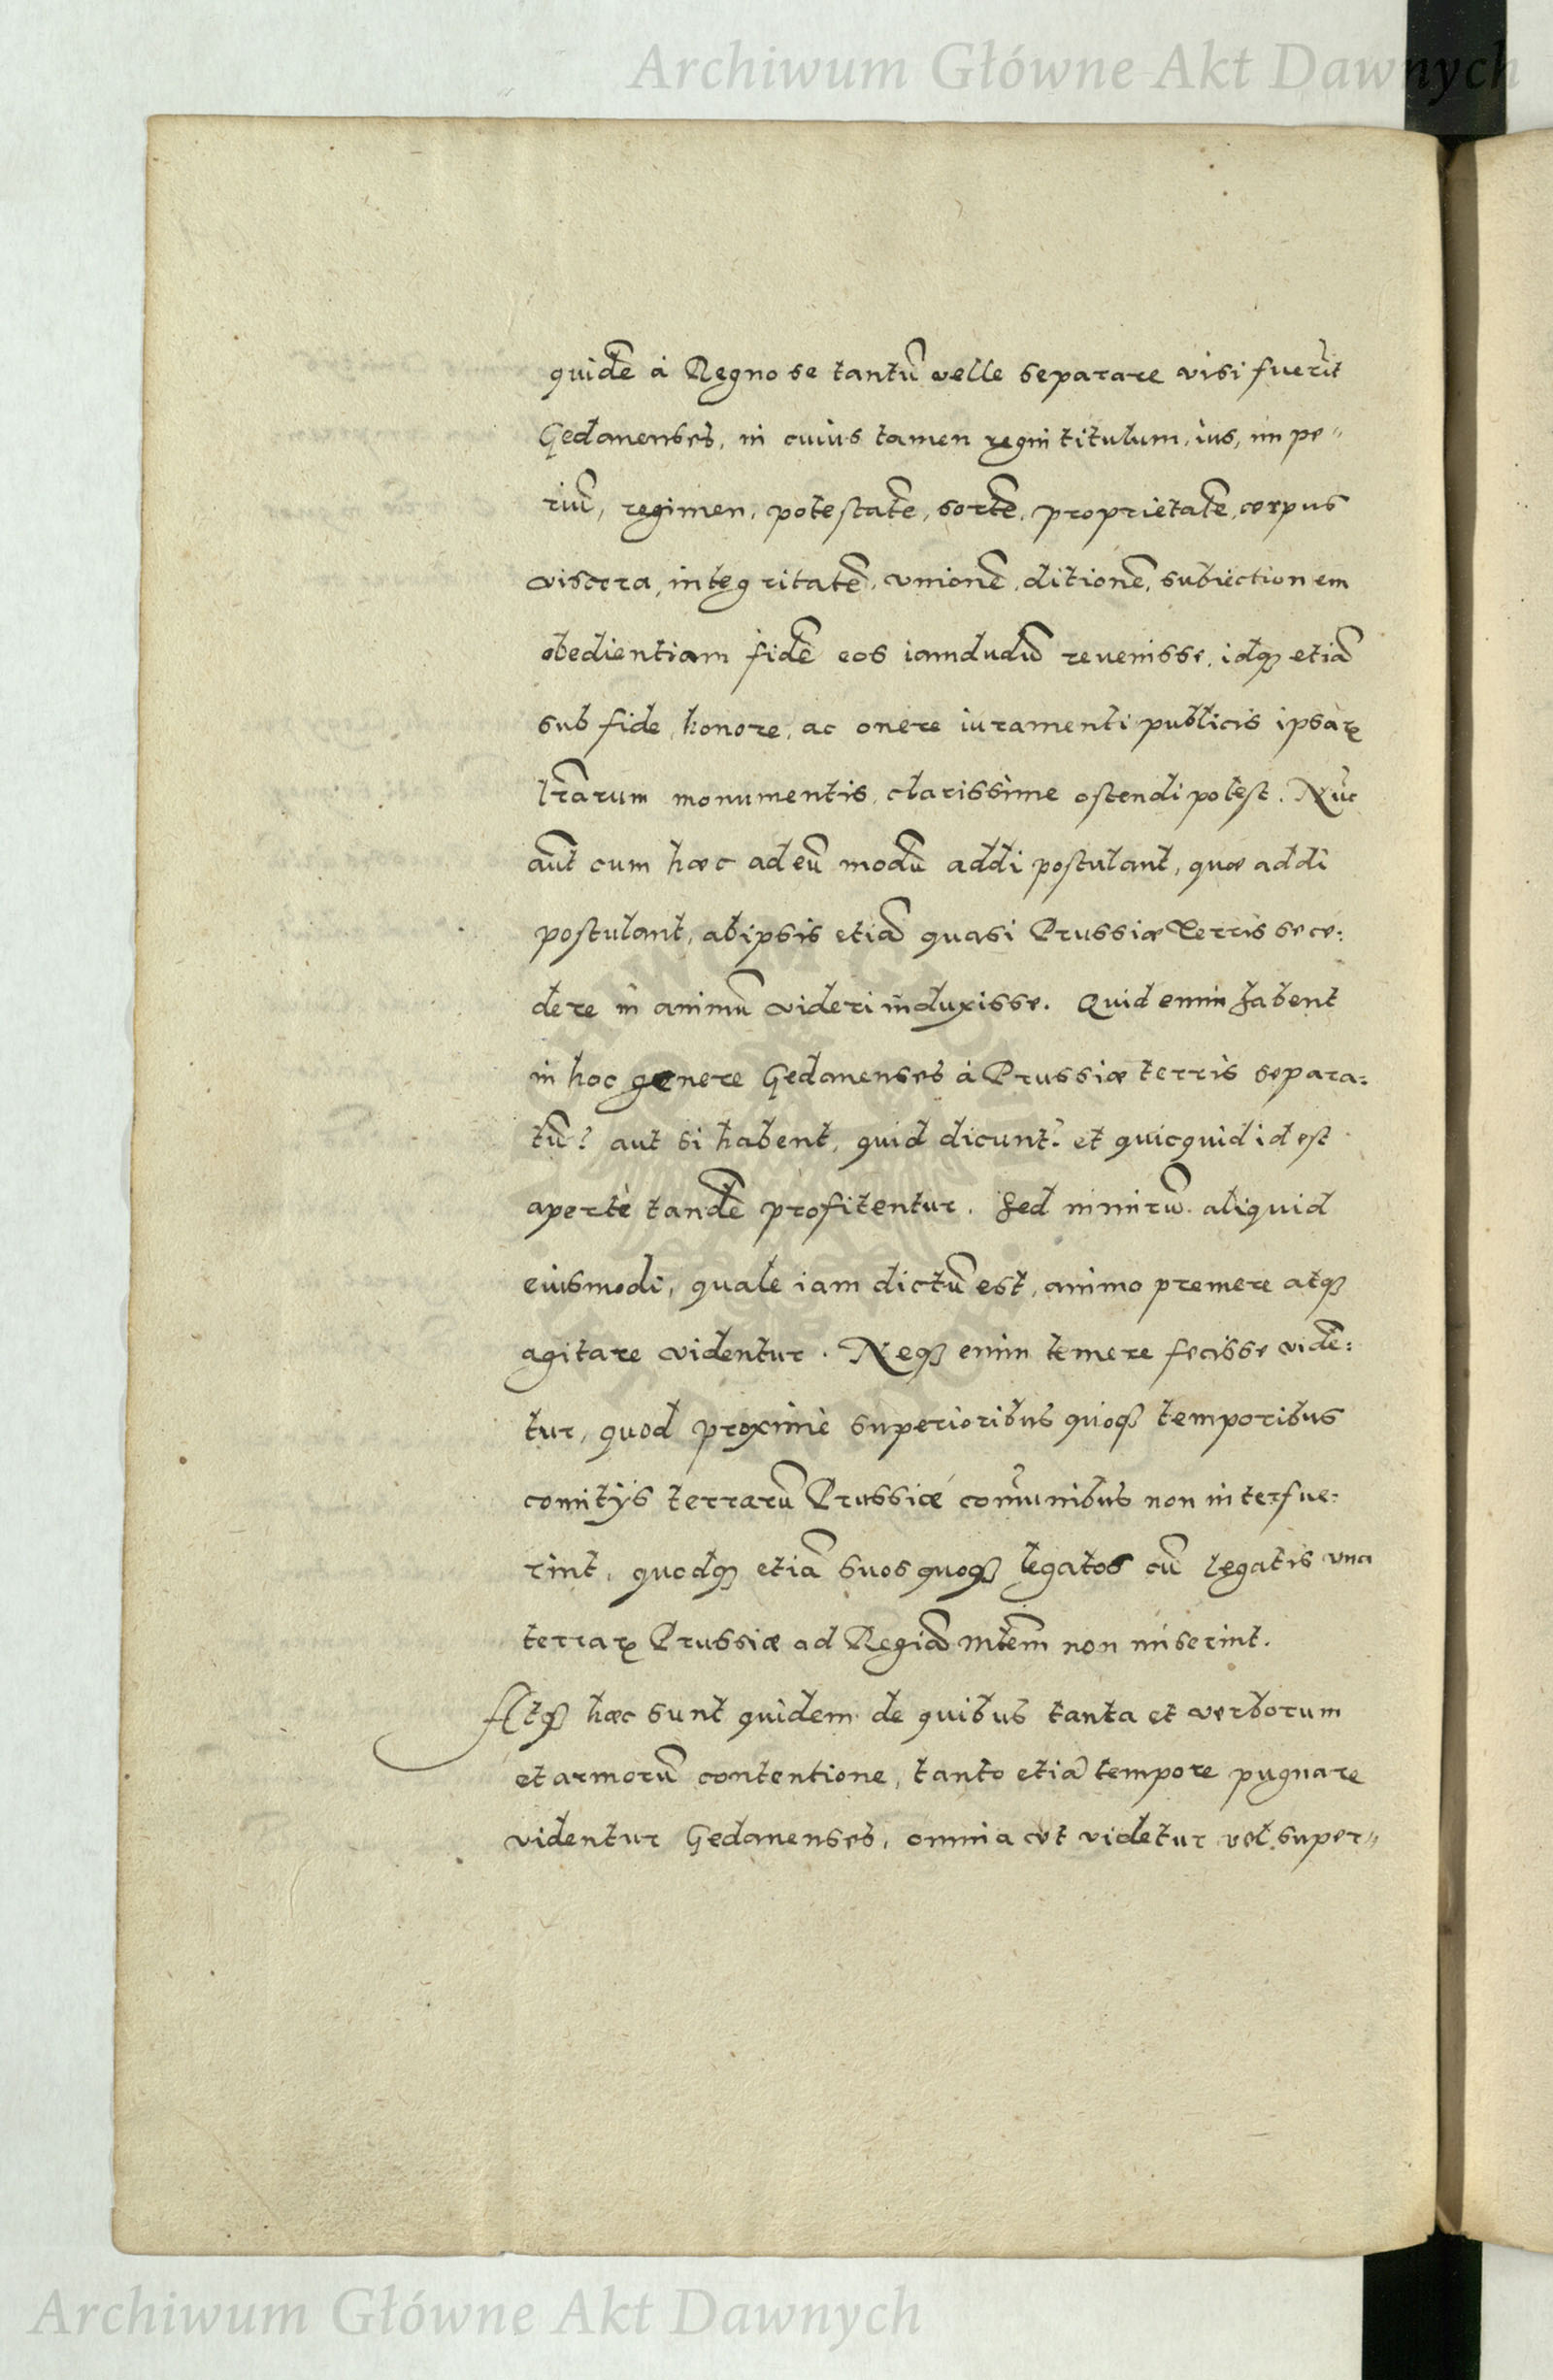 Archiwum Główne Akt Dawnych
quidẽ à Regno se tantũ velle separare visi fuerĩt
Gedanenses, in cuius tamen regni titulum, ius, impe"
riũ, regimen, potestatẽ, sortẽ, proprietatẽ, corpus
viscera, integritatẽ, vnionẽ, ditionẽ, subiectionem
obedientiam fidẽ eos iamdudũ revenisse, idqȝ etiã
sub fide, honore, ac onere iuramenti publicis ipsaꝝ
lr̃arum monumentis, clarissime ostendi potest. Nũc
aũt cum hæc ad eũ modũ addi postulant, quæ addi
postulant, ab ipsis etiã quasi Prussiæ Terris sece:
dere in animũ videri induxisse. Quid enim habent
in hoc genere Gedanenses à Prussiæ terris separa:
tũ? aut si habent, quid dicunt? et quicquid id est
apertè tandẽ profitentur. Sed nimirũ aliquid
eiusmodi, quale iam dictũ est, animo premere atqȝ
agitare videntur. Neqȝ enim temere fecisse vidẽ:
tur, quod proximè superioribus quoqȝ temporibus
comitÿs terrarũ Prussiæ com̃unibus non interfue:
rint, quodqȝ etiã suos quoqȝ legatos cũ legatis vna
terraꝝ Prussiæ ad Regiã Mtẽm non miserint.
Atqȝ hæc sunt quidem de quibus tanta et verborum
et armorũ contentione, tanto etiã tempore pugnare
videntur Gedanenses, omnia vt videtur vel super"
Archiwum Główne Akt Dawnych